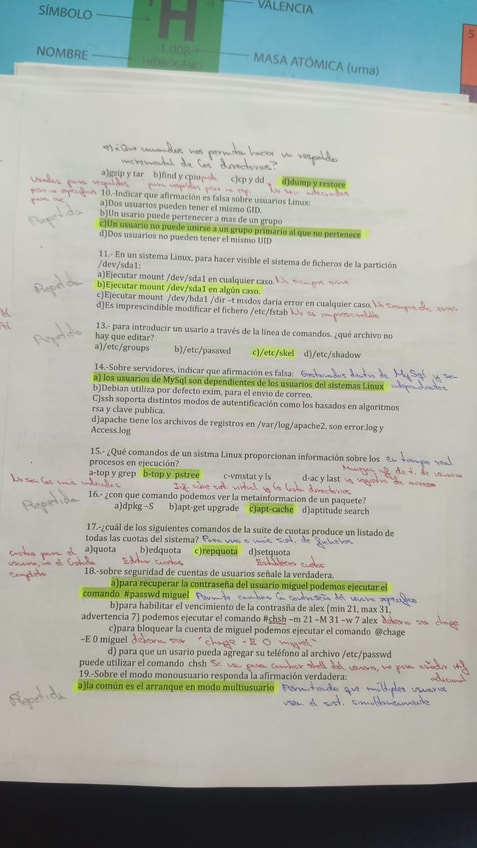 SÍMBOLO
H
VALENCIA
NOMBRE
1.008
HIDRÓGENO
MASA ATÓMICA (uma)
5
9)¿Que comandos nos permiten hacer un respaldo
incremental de los directorios?
a)gzip y tar b)find y cpio c)cp y dd d)dump y restore
10.-Indicar que afirmación es falsa sobre usuarios Linux:
Repetida
a)Dos usuarios pueden tener el mismo GID.
b)Un usario puede pertenecer a mas de un grupo
c)Un usuario no puede unirse a un grupo primario al que no pertenece
d)Dos usuarios no pueden tener el mismo UID
11.- En un sistema Linux, para hacer visible el sistema de ficheros de la partición
/dev/sda1:
a)Ejecutar mount /dev/sda1 en cualquier caso. No siempre sirve
Repetida
b)Ejecutar mount /dev/sda1 en algún caso.
c)Ejecutar mount /dev/hda1 /dir –t msdos daría error en cualquier caso. No siempre da error
d)Es imprescindible modificar el fichero /etc/fstab No es imprescindible
13.- para introducir un usuario a través de la línea de comandos. ¿qué archivo no
Repetida
hay que editar?
a)/etc/groups b)/etc/passwd c)/etc/skel d)/etc/shadow
14.-Sobre servidores, indicar que afirmación es falsa: Gestionados dentro de MySql y son
a) los usuarios de MySql son dependientes de los usuarios del sistemas Linux independientes
b)Debian utiliza por defecto exim, para el envio de correo.
C)ssh soporta distintos modos de autentificación como los basados en algoritmos
rsa y clave publica.
d)apache tiene los archivos de registros en /var/log/apache2, son error.log y
Access.log
15.- ¿Qué comandos de un sistma Linux proporcionan información sobre los en tiempo real
procesos en ejecución?
a-top y grep b-top y pstree c-vmstat y ls d-ac y last
No son los más indicados
Repetida
16.- ¿con que comando podemos ver la metainformacion de un paquete?
a)dpkg –S b)apt-get upgrade c)apt-cache d)aptitude search
17.-¿cuál de los siguientes comandos de la suite de cuotas produce un listado de
todas las cuotas del sistema? Para uno o más sist. de ficheros
a)quota b)edquota c)repquota d)setquota
Editar cuotas Establecer cuotas
18.-sobre seguridad de cuentas de usuarios señale la verdadera.
a)para recuperar la contraseña del usuario miguel podemos ejecutar el
comando #passwd miguel Permite cambiar la contraseña del usuario específico
b)para habilitar el vencimiento de la contrasña de alex (min 21, max 31,
advertencia 7) podemos ejecutar el comando #chsh –m 21 –M 31 –w 7 alex debería ser chage
c)para bloquear la cuenta de miguel podemos ejecutar el comando @chage
–E 0 miguel debería ser "chage -E 0 miguel"
d) para que un usuario pueda agregar su teléfono al archivo /etc/passwd
puede utilizar el comando chsh Se usa para cambiar shell del usuario, no para añadir info
adicional
19.-Sobre el modo monousuario responda la afirmación verdadera:
Repetida
a)la común es el arranque en modo multiusuario Permitiendo que múltiples usuarios
usen el sist. simultáneamente